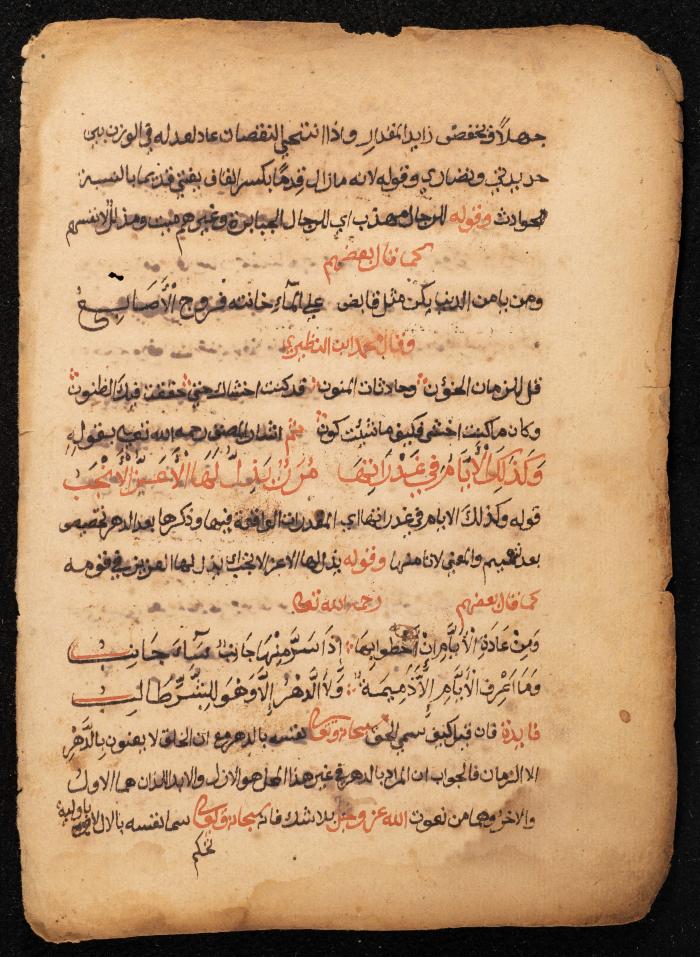 جهلاً فتخفض زايد المقدار واذا انتحي النقصان عادل عدله في الوزن بين
حديدتي ونضاري وقوله لانه مازال قدمًا بكسر القاف يعني قديما بالنسبة
للحوادث وقوله الرجال مهذب اي الرجال الجبابرة وغيرهم مميت ومذل لانفسهم
كما قال بعضهم
ومن يامن الدنيا يكن مثل قابض على المآء خانته فروج الأصابع
وقال محمد ابن
قل للزمان الخؤن وحادثات المنون قد كنت اخشاك حتي حققت فيك الظنون
وكان ما كنت اخشي فكيف ما شئت كون ثم اشار المصنف رحمه الله تعالي بقوله
وكذلك الأيام في غدراتها مرن يذل لها الأعز الأنجب
قوله وكذلك الايام في غدراتها اي المقدرات الواقعة فيها وذكرها بعد الدهر تخصيص
بعد تعميم والمعني لانا منها وقوله يذل لها الاعز الانجب اي يذل لها العزيز في قومه
كما قال بعضهم رحمه الله تعالي
ومن عادة الأيام ان خطوبها إذا سر منها جانب سآء جانب
وما اعرف الأيام إلا ذميمة ولا الدهر إلا وهو للشر طالب
فايدة فان قيل كيف سمي الحق سبحانه وتعالي نفسه بالدهر مع ان الخلق لا يعنون بالدهر
الا الزمان فالجواب ان المراد بالدهر في غير هذا المحل هو الازل والابد اللذان هما الاول
والاخر وهما من نعوت الله عز وجل بلا شك فانه سبحانه وتعالي سما نفسه بالاول والاخر